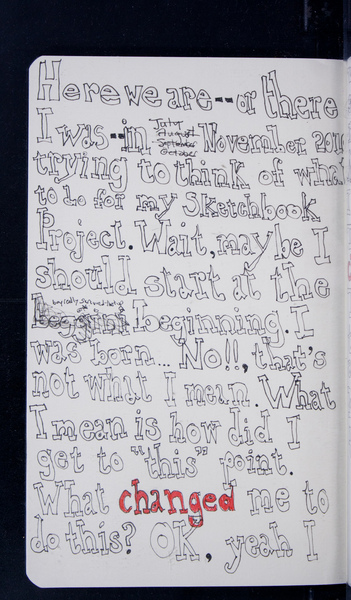 Here we are--or there
I was--in July August September October November 201
trying to think of what
to do for my Sketchbook
Project. Wait, maybe I
should start at the
beginning. I
was born... No!!, that's
not what I mean. What
I mean is how did I
get to "this" point.
What changed me to
do this? OK, yeah I